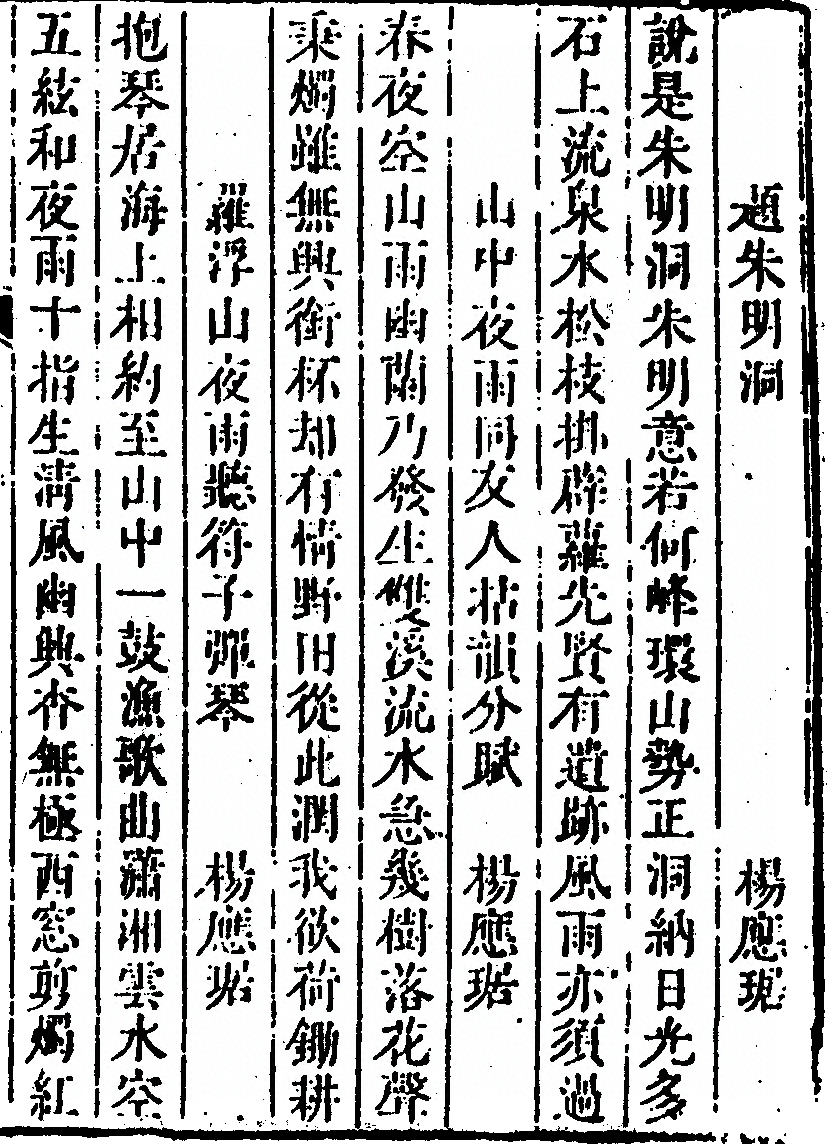 題朱明洞 楊應琚
說是朱明洞朱明意若何峰環山勢正洞納日光多
石上流泉水松枝掛薜蘿先賢有遺跡風雨亦須過
山中夜雨同友人拈韻分賦 楊應琚
春夜空山雨幽蘭乃發生雙溪流水急幾樹落花聲
秉燭雖無興銜杯却有情野田從此潤我欲荷鋤耕
羅浮山夜雨聽符子彈琴 楊應琚
抱琴居海上相約至山中一鼓漁歌曲瀟湘雲水空
五絃和夜雨十指生淸風幽興杳無極西窓剪燭紅